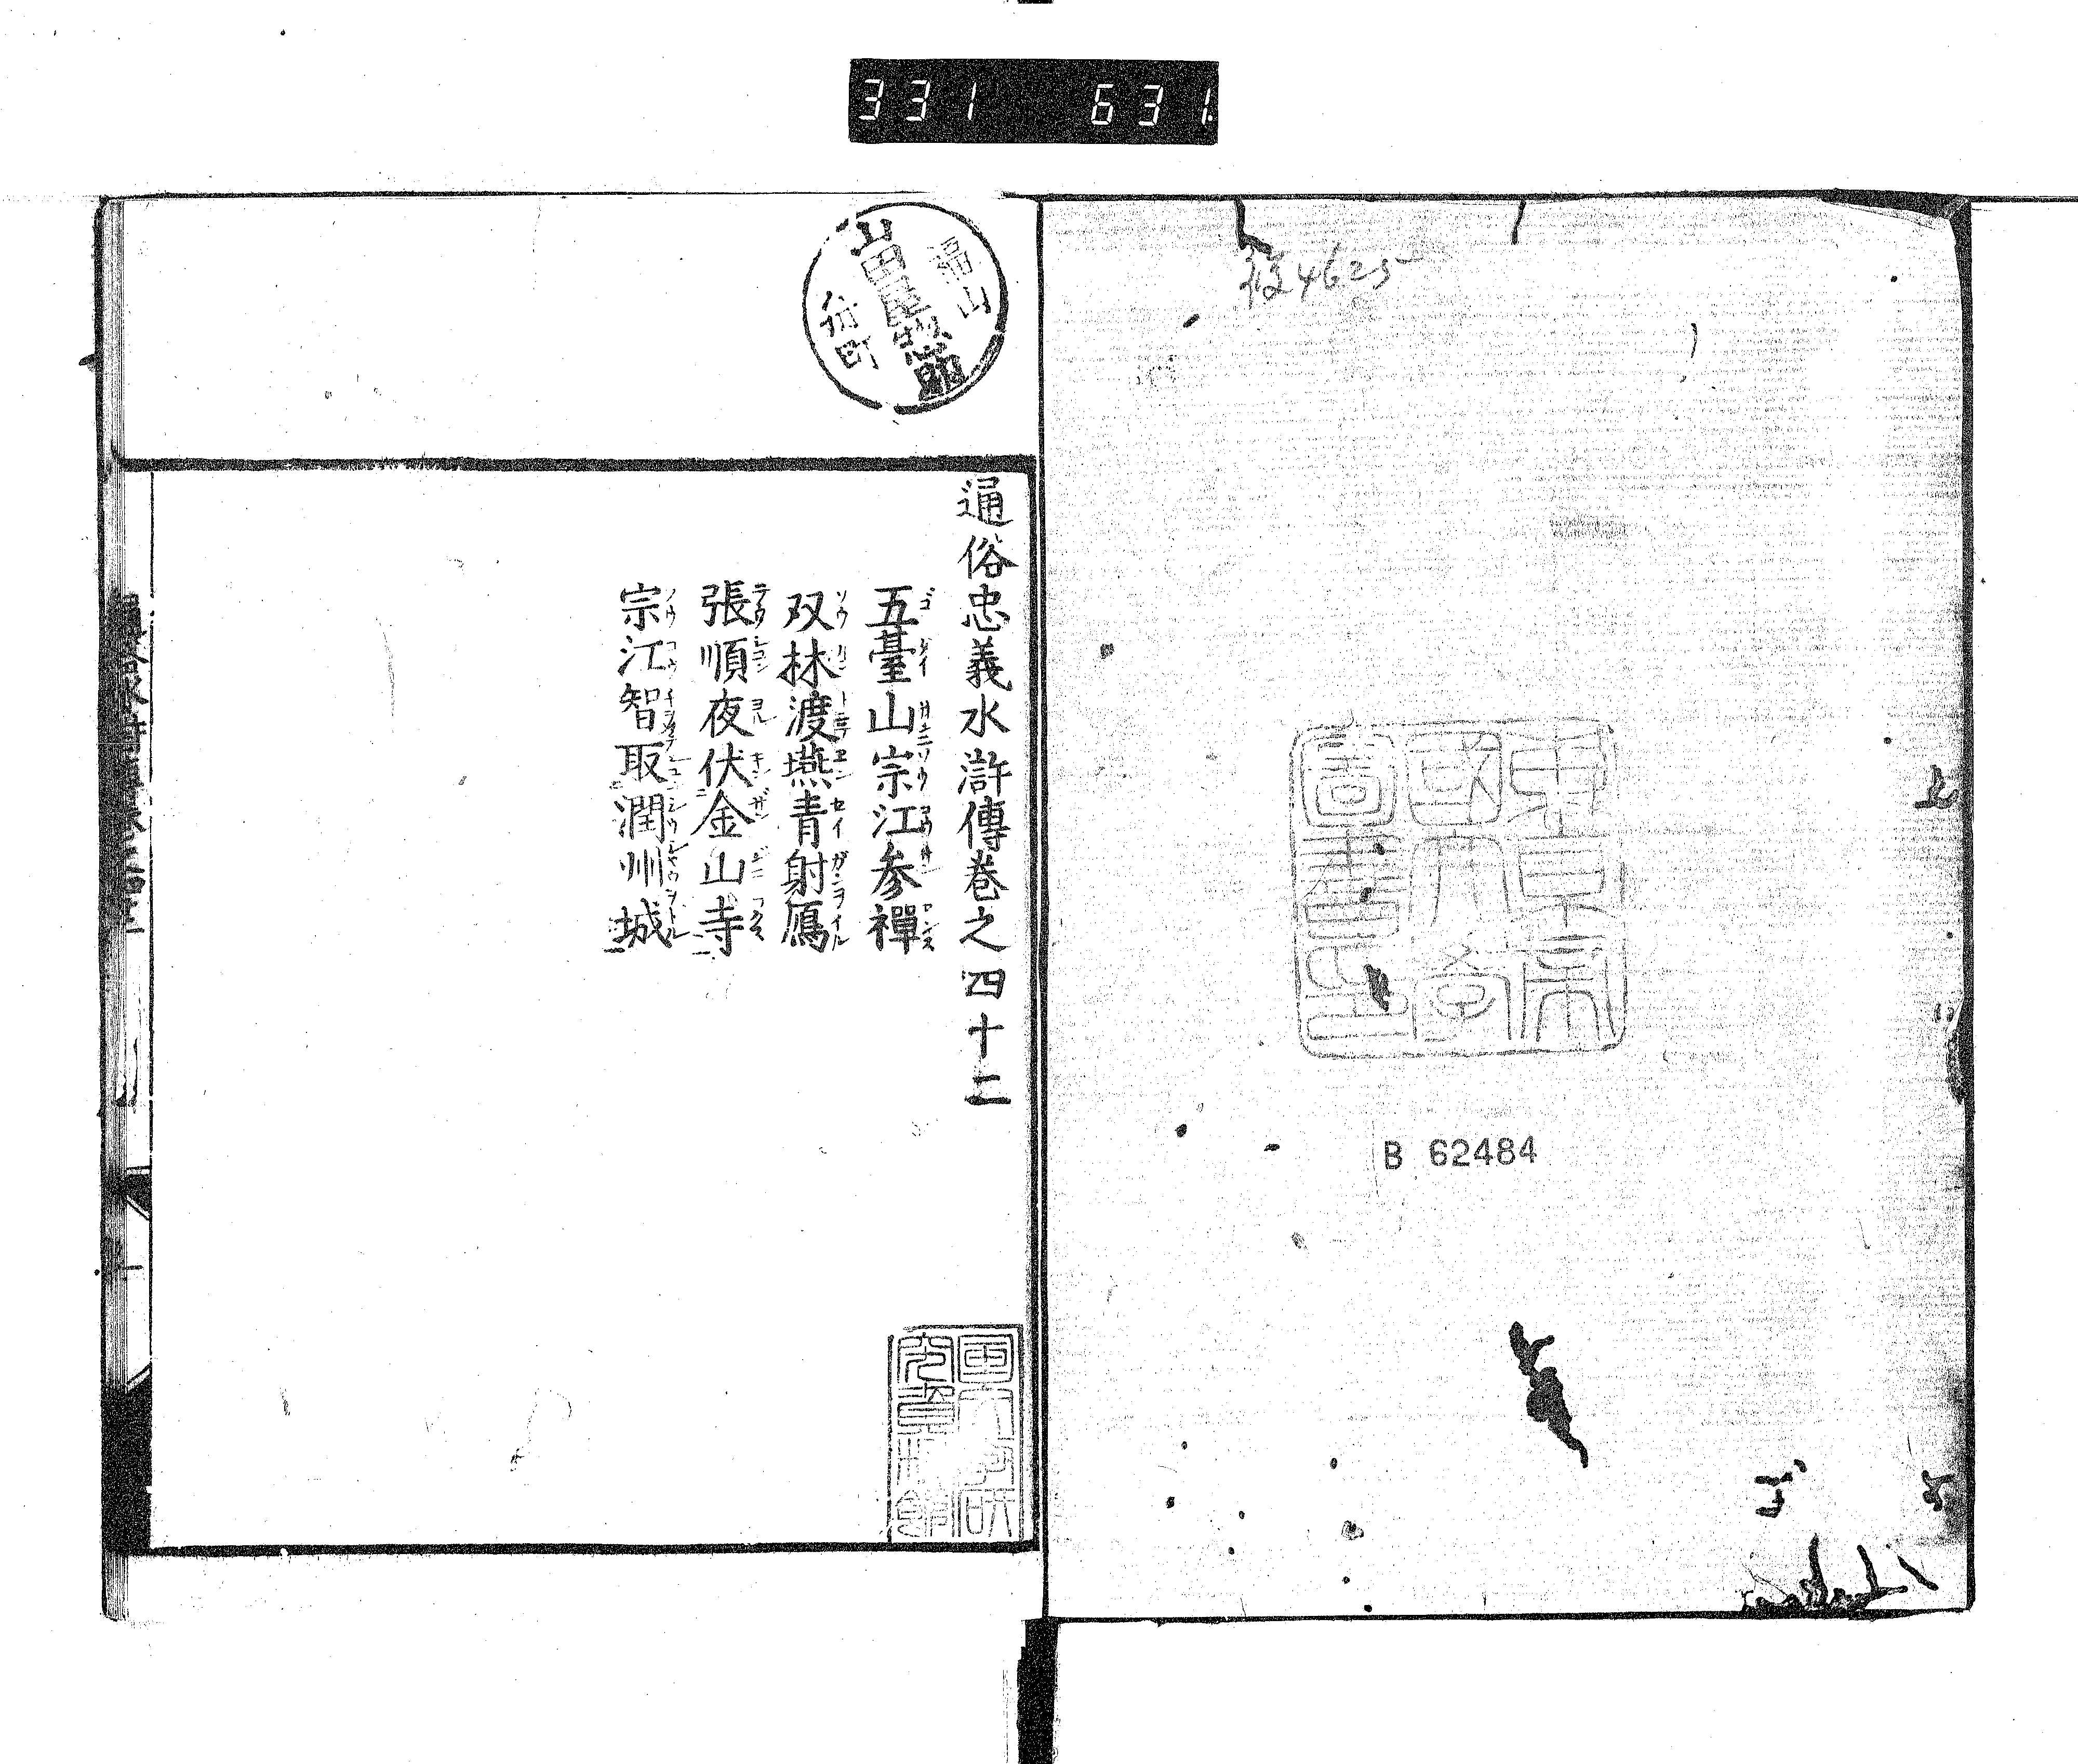 331 631
B 62484
東京帝國大學圖書印
福山
山田屋
通俗忠義水滸傳巻之四十二
五臺山宗江参禪
双林渡燕青射鴈
張順夜伏金山寺
宗江智取潤州城
国文学研究資料館